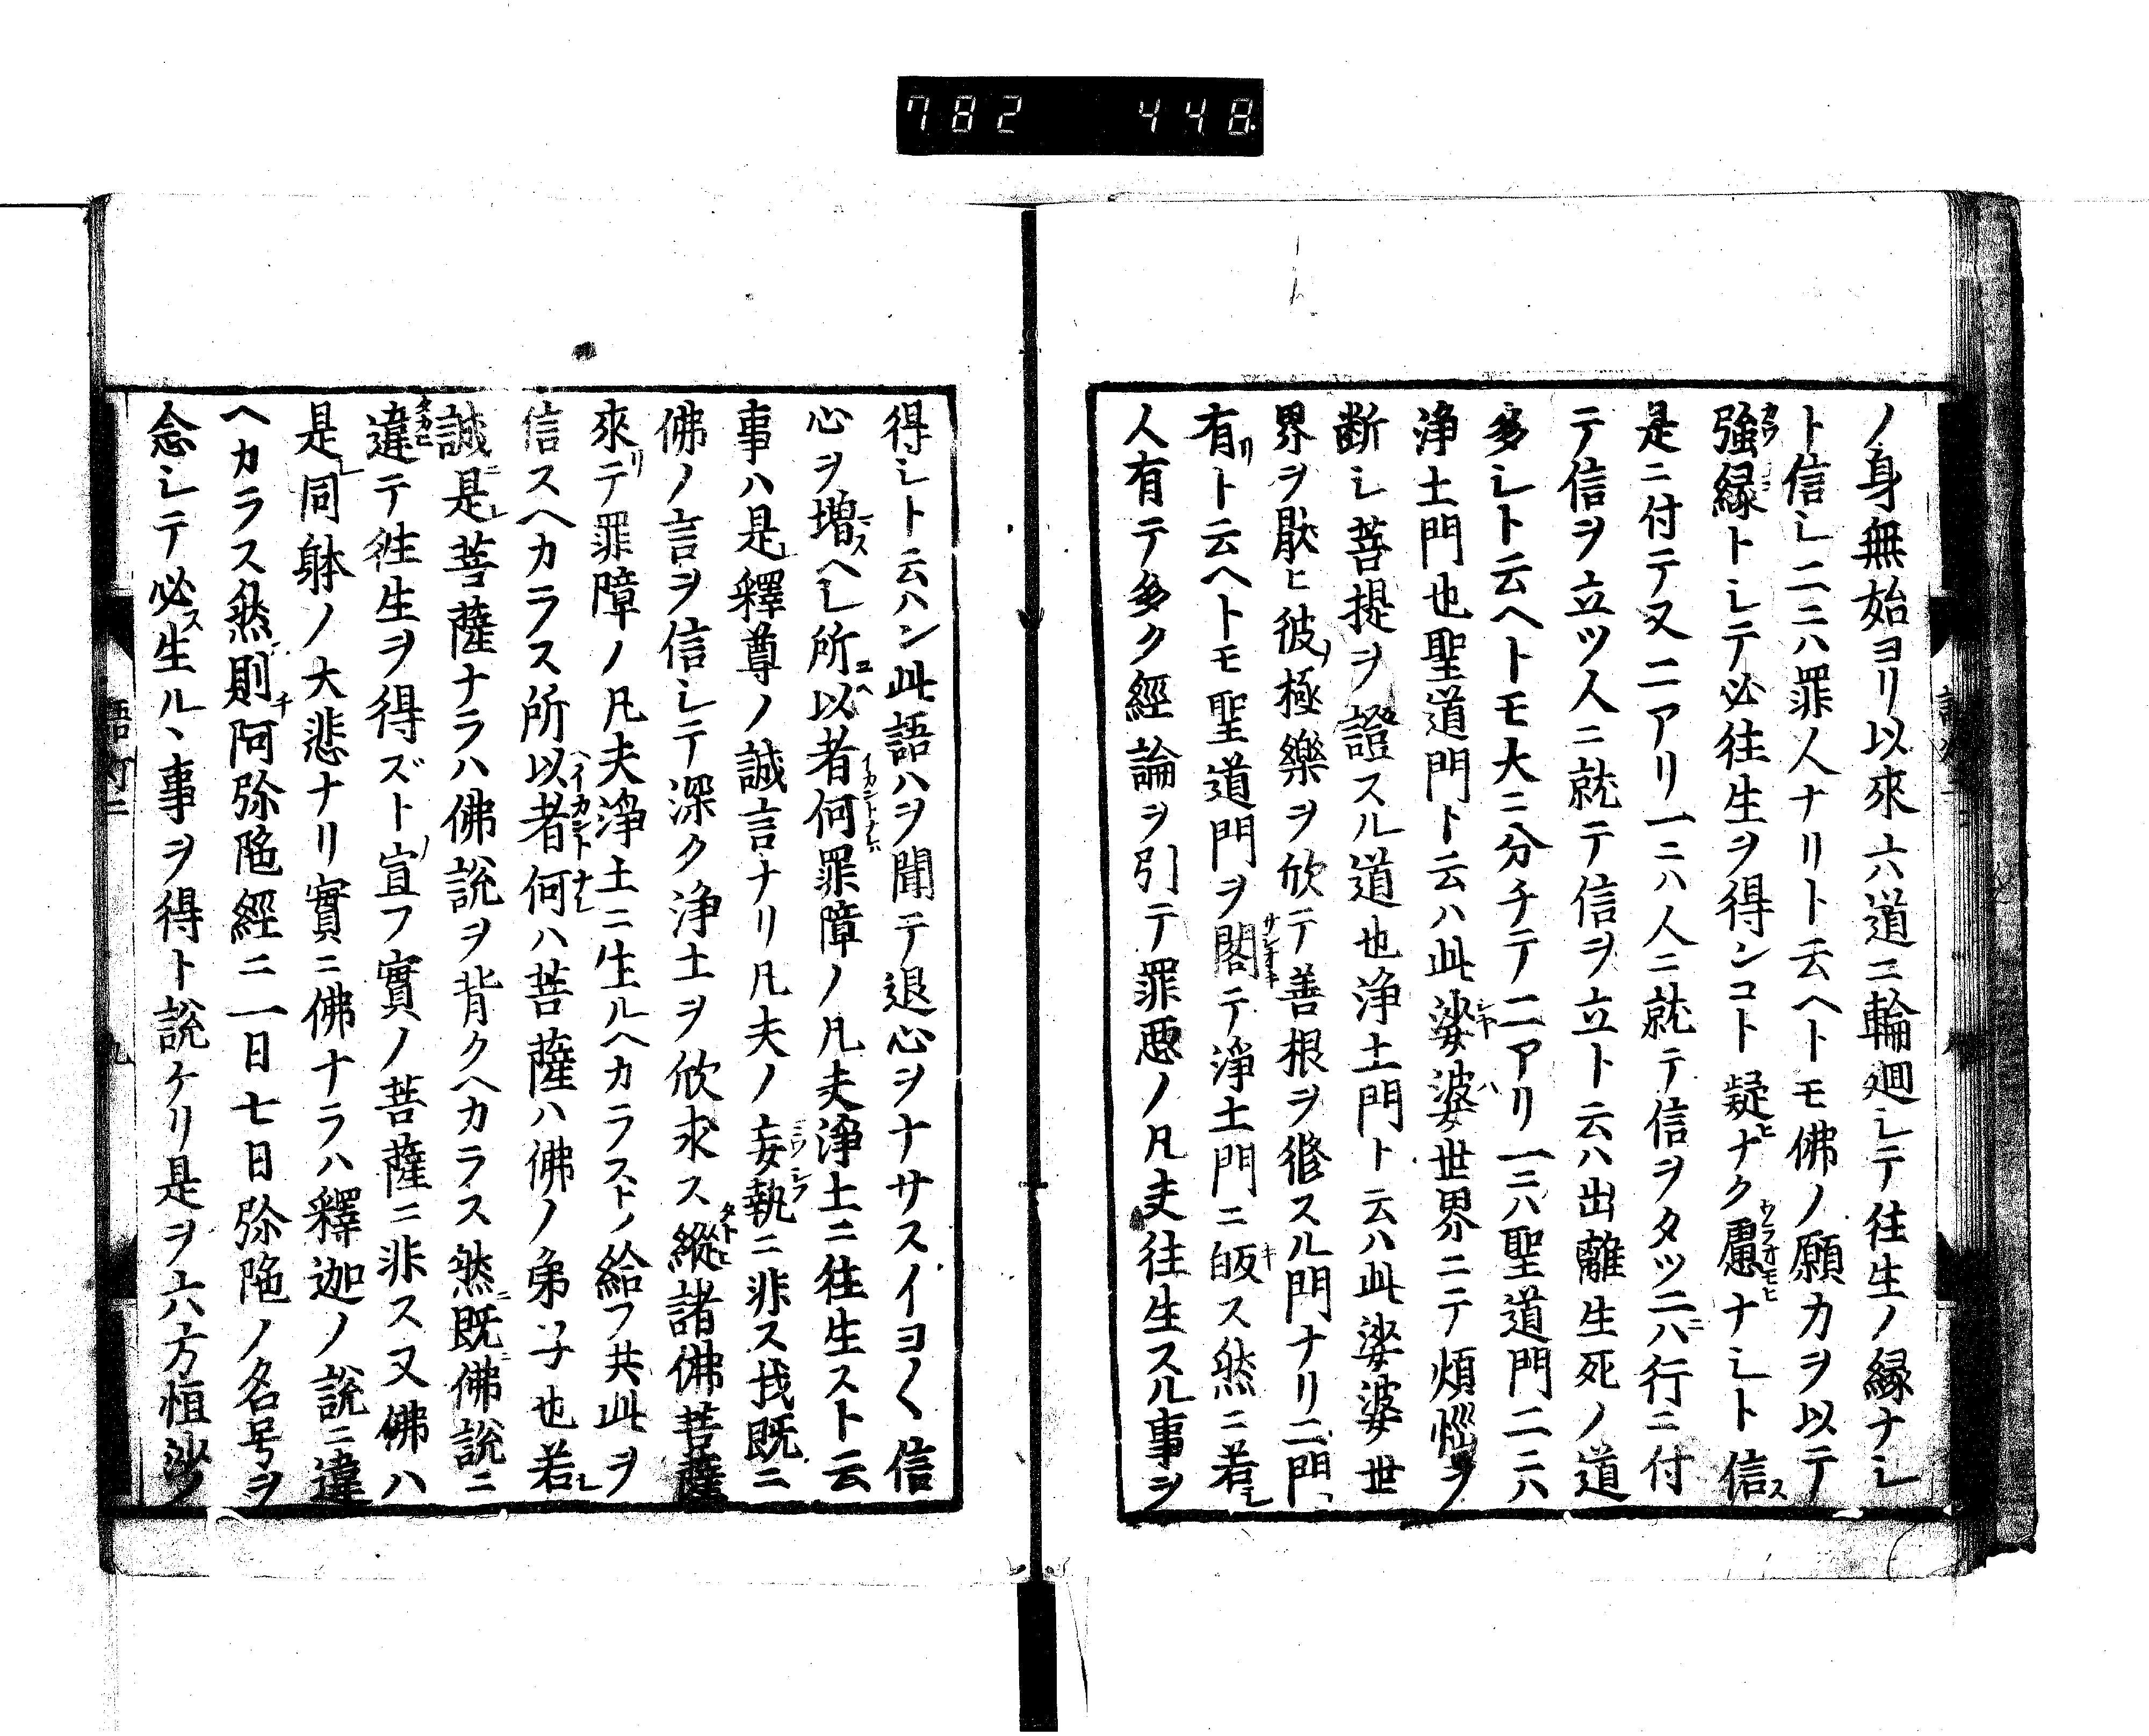 782 448
ノ身無始ヨリ以來六道ニ輪廻シテ往生ノ縁ナシ
ト信シ二ニハ罪人ナリト云ヘトモ佛ノ願力ヲ以テ
強縁トシテ必往生ヲ得ンコト疑ヒナク慮ナシト信ス
是ニ付テ又二アリ一ニハ人ニ就テ信ヲタツ二ニハ行ニ付
テ信ヲ立ツ人ニ就テ信ヲ立ト云ハ出離生死ノ道
多シト云ヘトモ大ニ分チテ二アリ一ニハ聖道門二ニハ
浄土門也聖道門ト云ハ此娑婆世界ニテ煩悩ヲ
断シ菩提ヲ證スル道也浄土門ト云ハ此娑婆世
界ヲ厭ヒ彼ノ極樂ヲ欣テ善根ヲ修スル門ナリ二門
有リト云ヘトモ聖道門ヲ閣テ浄土門ニ皈ス然ニ若シ
人有テ多ク經論ヲ引テ罪悪ノ凡夫往生スル事ヲ
得シト云ハン此語ハヲ聞テ退心ヲナサスイヨ〱信
心ヲ増スヘシ所以者何罪障ノ凡夫浄土ニ往生スト云
事ハ是レ釋尊ノ誠言ナリ凡夫ノ妄執ニ非ス我既ニ
佛ノ言ヲ信シテ深ク浄土ヲ欣求ス縦諸佛菩薩
來リテ罪障ノ凡夫浄土ニ生ルヘカラストノ給フ共此ヲ
信スヘカラス所以者何ハ菩薩ハ佛ノ弟子也若シ
誠ニ是レ菩薩ナラハ佛説ヲ背クヘカラス然ニ既ニ佛説ニ
違テ往生ヲ得ズトノ宣フ實ノ菩薩ニ非ス又佛ハ
是レ同躰ノ大悲ナリ實ニ佛ナラハ釋迦ノ説ニ違
ヘカラス然則チ阿弥陀經ニ一日七日弥陀ノ名号ヲ
念シテ必ス生ルヽ事ヲ得ト説ケリ是ヲ六方恒沙ノ